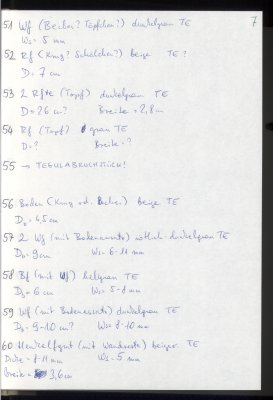 7
51 Wf (Becher? Töpfchen?) dunkelgrau TE
Ws = 5 mm
52 Rf (Krug? Schälchen?) beige TE?
D = 7 cm
53 2 Rfte (Topf) dunkelgrau TE
D = 26 cm? Breite = 2,8 cm
54 Rf (Topf) grau TE
D = ? Breite = ?
55 → TEGULABRUCHSTÜCK!
56 Boden (Krug od. Becher) beige TE
D₀ = 4,5 cm
57 2 Wf (mit Bodenansatz) rötlich-dunkelgrau TE
D₀ = 9 cm Ws = 6-11 mm
58 Bf (mit Wf) hellgrau TE
D₀ = 6 cm Ws = 5-8 mm
59 Wf (mit Bodenansatz) dunkelgrau TE
D₀ = 9-10 cm? Ws = 8-10 mm
60 Henkelfgmt (mit Wandrest) beiger TE
Dicke = 8-11 mm Ws = 5 mm
Breite = 3,6 cm